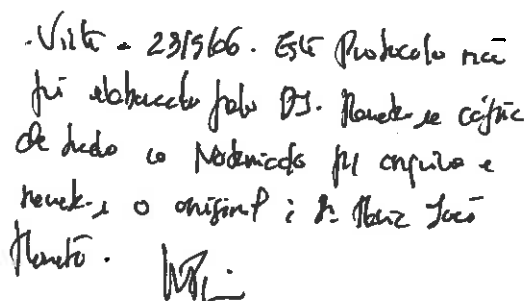 Visto - 23/5/06. Este Protocolo não
foi elaborado pelo DJ. Remeta-se cópia
de tudo ao para arquivo e
remeta-se o original à Dr. João